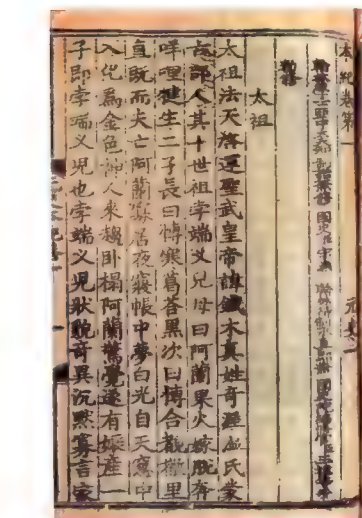 本紀卷第一 元史一
翰林學士亞中大夫知制誥兼修 國史臣宋濂 翰林待制承直郎兼國史院編修官臣王禕奉
勑修
太祖
太祖法天啓運聖武皇帝諱鐵木真姓奇渥温氏蒙
古部人其十世祖孛端义兒母曰阿蘭果火嫁脫奔
咩哩犍生二子長曰博寒葛荅黑次曰博合覩撒里
直既而夫亡阿蘭寡居夜寢帳中夢白光自天窻中
入化爲金色神人來趨卧榻阿蘭驚覺遂有娠產一
子即孛端义兒也孛端义兒狀貌奇異沉默寡言家